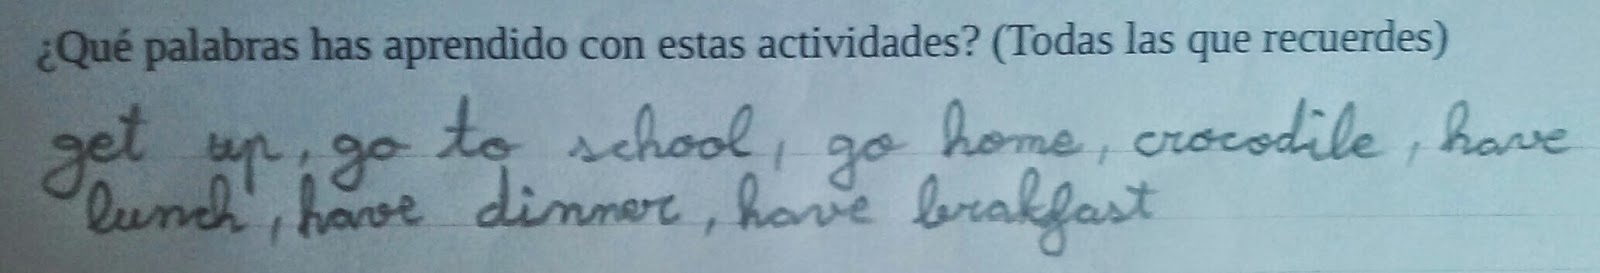 ¿Qué palabras has aprendido con estas actividades? (Todas las que recuerdes)
get up, go to school, go home, crocodile, have
lunch, have dinner, have brakfast